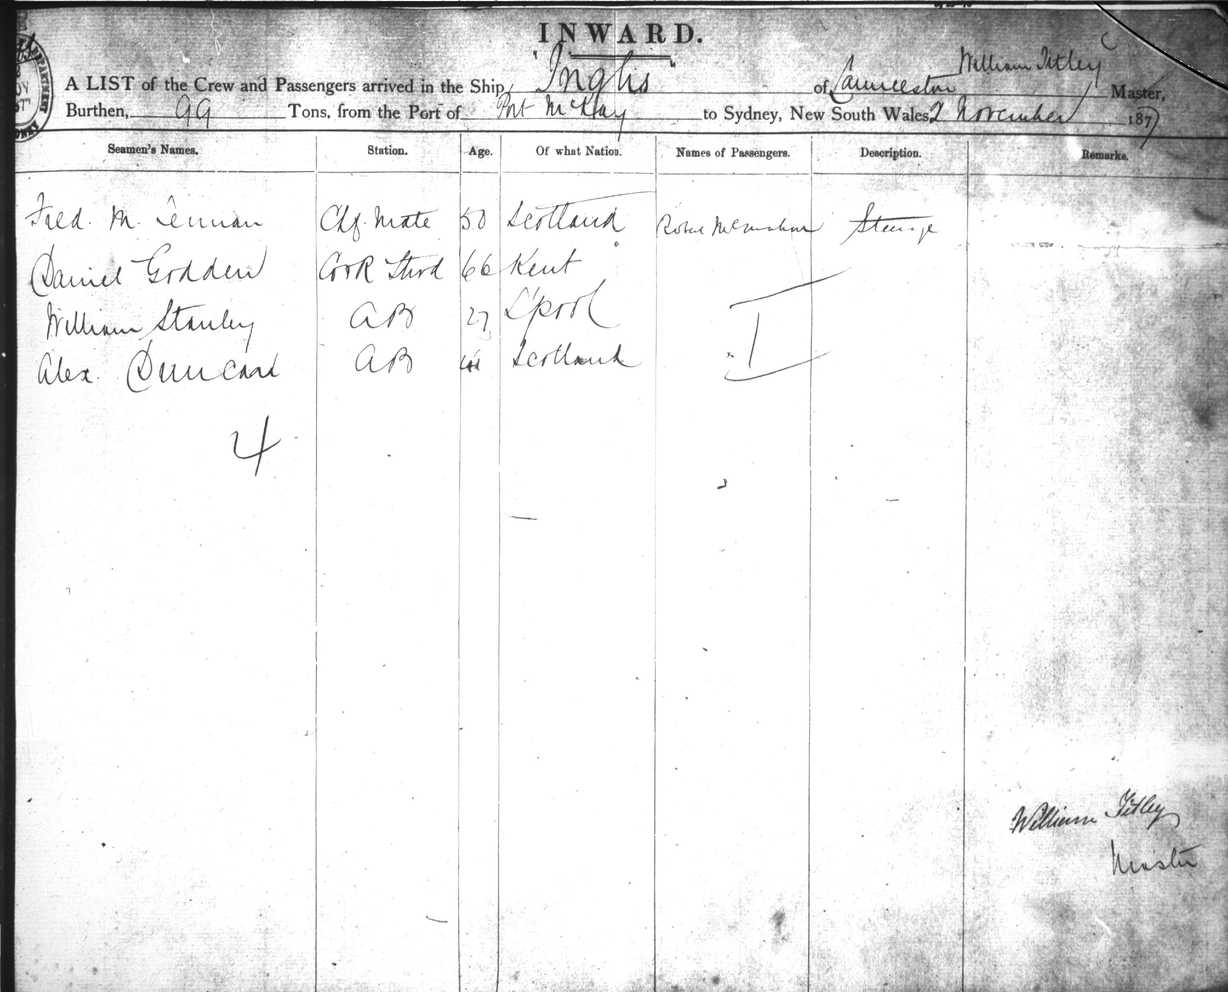 INWARD.
A LIST of the Crew and Passengers arrived in the Ship, "Inglis" of Launceston William Titley Master,
Burthen, 99 Tons, from the Port of Port McKay to Sydney, New South Wales, 2 November 1877
Seamen's Names. Station. Age. Of what Nation. Names of Passengers. Description. Remarks.
Fred. M. Chf. Mate 50 Scotland Robert Steerage
Daniel Godden Cook Stwd 66 Kent
William Stanley AB 27 L'pool
Alex. Duncan AB Scotland
4 I
William Titley
Master